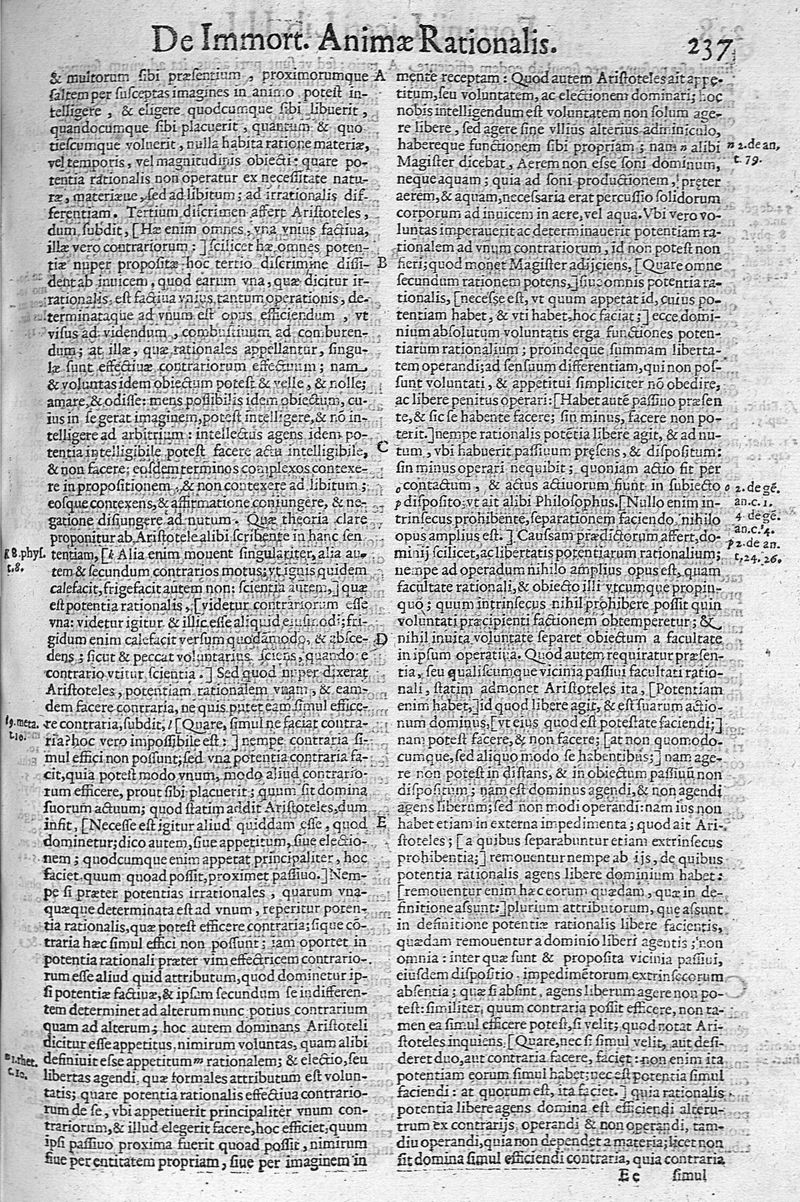 De Immort. Animæ Rationalis.
237
& multorum sibi præsentium, proximorumque
saltem per susceptas imagines in animo potest in-
telligere, & eligere quodcumque sibi libuerit,
quandocumque sibi placuerit, quantum & quo
tiescumque voluerit, nulla habita ratione materiæ,
vel temporis, vel magnitudinis obiecti: quare po-
tentia rationalis non operatur ex necessitate natu-
ræ, materiæue, sed ad libitum; ad irrationalis dif-
ferentiam. Tertium discrimen affert Aristoteles,
dum subdit, [Hæ enim omnes, vna vnius factiua,
illæ vero contrariorum:] scilicet hæ omnes poten-
tiæ nuper propositæ hoc tertio discrimine dissi-
dent ab inuicem, quod earum vna, quæ dicitur ir-
rationalis, est factiua vnius tantum operationis, de-
terminataque ad vnum est opus efficiendum, vt
visus ad videndum, combustiuum ad comburen-
dum; at illæ, quæ rationales appellantur, singu-
læ sunt effectiuæ contrariorum effectuum; nam
& voluntas idem obiectum potest & velle, & nolle;
amare, & odisse: mens possibilis idem obiectum, cu-
ius in se gerat imaginem, potest intelligere, & nō in-
telligere ad arbitrium: intellectus agens idem po-
tentia intelligibile potest facere actu intelligibile,
& non facere; eosdem terminos complexos contexe-
re in propositionem, & non contexere ad libitum;
eosque contexens, & affirmatione coniungere, & ne-
gatione disiungere ad nutum. Quæ theoria clare
proponitur ab Aristotele alibi scribente in hanc sen
tentiam, [k Alia enim mouent singulariter, alia au-
tem & secundum contrarios motus; vt ignis quidem
calefacit, frigefacit autem non: scientia autem,] quæ
est potentia rationalis, [videtur contrariorum esse
vna: videtur igitur & illic esse aliquid eiusmodi; fri-
gidum enim calefacit versum quodāmodo, & absce-
dens; sicut & peccat voluntarius sciens, quando e
contrario vtitur scientia.] Sed quod nuper dixerat
Aristoteles, potentiam rationalem vnam, & eam-
dem facere contraria, ne quis putet eam simul effice-
re contraria, subdit, l [Quare, simul ne faciat contra-
ria? hoc vero impossibile est:] nempe contraria si-
mul effici non possunt; sed vna potentia contraria fa-
cit, quia potest modo vnum, modo aliud contrario-
rum efficere, prout sibi placuerit; quum sit domina
suorum actuum; quod statim addit Aristoteles, dum
infit, [Necesse est igitur aliud quiddam esse, quod
dominetur; dico autem, siue appetitum, siue electio-
nem; quodcumque enim appetat principaliter, hoc
faciet quum quoad possit, proximet passiuo.] Nem-
pe si præter potentias irrationales, quarum vna-
quæque determinata est ad vnum, reperitur poten-
tia rationalis, quæ potest efficere contraria; sique cō-
traria hæc simul effici non possunt; iam oportet in
potentia rationali præter vim effectricem contrario-
rum esse aliud quid attributum, quod dominetur ip-
si potentiæ factiuæ, & ipsam secundum se indifferen-
tem determinet ad alterum nunc potius contrarium
quam ad alterum; hoc autem dominans Aristoteli
dicitur esse appetitus, nimirum voluntas, quam alibi
definiuit esse appetitum m rationalem; & electio, seu
libertas agendi, quæ formales attributum est volun-
tatis; quare potentia rationalis effectiua contrario-
rum de se, vbi appetiuerit principaliter vnum con-
trariorum, & illud elegerit facere, hoc efficiet; quum
ipsi passiuo proxima fuerit quoad possit, nimirum
siue per entitatem propriam, siue per imaginem in
k 8. phys.
t. 8.
l 9. meta.
t. 10.
m 1. rhet.
c. 10.
A
B
C
D
E
mente receptam: Quod autem Aristoteles ait appe-
titum, seu voluntatem, ac electionem dominari; hoc
nobis intelligendum est voluntatem non solum age-
re libere, sed agere sine vllius alterius adminiculo,
habereque functionem sibi propriam; nam n alibi
Magister dicebat, Aerem non esse soni dominum,
neque aquam; quia ad soni productionem, præter
aerem, & aquam, necessaria erat percussio solidorum
corporum ad inuicem in aere, vel aqua. Vbi vero vo-
luntas imperauerit ac determinauerit potentiam ra-
tionalem ad vnum contrariorum, id non potest non
fieri; quod monet Magister adijciens, [Quare omne
secundum rationem potens,] siue omnis potentia ra-
tionalis, [necesse est, vt quum appetat id, cuius po-
tentiam habet, & vti habet, hoc faciat;] ecce domi-
nium absolutum voluntatis erga functiones poten-
tiarum rationalium; proindeque summam liberta-
tem operandi; ad sensuum differentiam, qui non pos-
sunt voluntati, & appetitui simpliciter nō obedire,
ac libere penitus operari: [Habet autē passiuo præsen
te, & sic se habente facere; sin minus, facere non po-
terit.] nempe rationalis potētia libere agit, & ad nu-
tum, vbi habuerit passiuum præsens, & dispositum:
sin minus operari nequibit; quoniam actio fit per
o contactum, & actus actiuorum fiunt in subiecto
p disposito; vt ait alibi Philosophus. [Nullo enim in-
trinsecus prohibente, separationem faciendo, nihilo
opus amplius est.] Caussam prædictorum affert, do-
minij scilicet, ac libertatis potentiarum rationalium;
nempe ad operandum nihilo amplius opus est, quam
facultate rationali, & obiecto illi vtcumque propin-
quo; quum intrinsecus nihil prohibere possit quin
voluntati præcipienti factionem obtemperetur; &
nihil inuita voluntate separet obiectum a facultate
in ipsum operatiua. Quod autem requiratur præsen-
tia, seu qualiscumque vicinia passiui facultati ratio-
nali, statim admonet Aristoteles ita, [Potentiam
enim habet,] id quod libere agit, & est suarum actio-
num dominus, [vt eius quod est potestate faciendi;]
nam potest facere, & non facere; [at non quomodo-
cumque, sed aliquo modo se habentibus;] nam age-
re non potest in distans, & in obiectum passiuū non
dispositum; nam est dominus agendi, & non agendi
agens liberum; sed non modi operandi: nam ius non
habet etiam in externa impedimenta; quod ait Ari-
stoteles; [a quibus separabuntur etiam extrinsecus
prohibentia;] remouentur nempe ab ijs, de quibus
potentia rationalis agens libere dominium habet:
[remouentur enim hæc eorum quædam, quæ in de-
finitione assunt:] plurium attributorum, que assunt
in definitione potentiæ rationalis libere facientis,
quædam remouentur a dominio liberi agentis; non
omnia: inter quæ sunt & proposita vicinia passiui,
eiusdem dispositio, impedimētorum extrinsecorum
absentia; quæ si absint, agens liberum agere non po-
test: similiter, quum contraria possit efficere, non ta-
men ea simul efficere potest, si velit; quod notat Ari-
stoteles inquiens. [Quare, nec si simul velit, aut desi-
deret duo, aut contraria facere, faciet: non enim ita
potentiam eorum simul habet; nec est potentia simul
faciendi: at quorum est, ita faciet.] quia rationalis
potentia libere agens domina est efficiendi alteru-
trum ex contrarijs, operandi & non operandi, tam-
diu operandi, quia non dependet a materia; licet non
sit domina simul efficiendi contraria, quia contraria
n 2. de an.
t. 79.
o 2. de gē.
an. c. 1.
4 de gē.
an. c. 4.
p 2. de an.
t. 24. 26.
Ee
simul